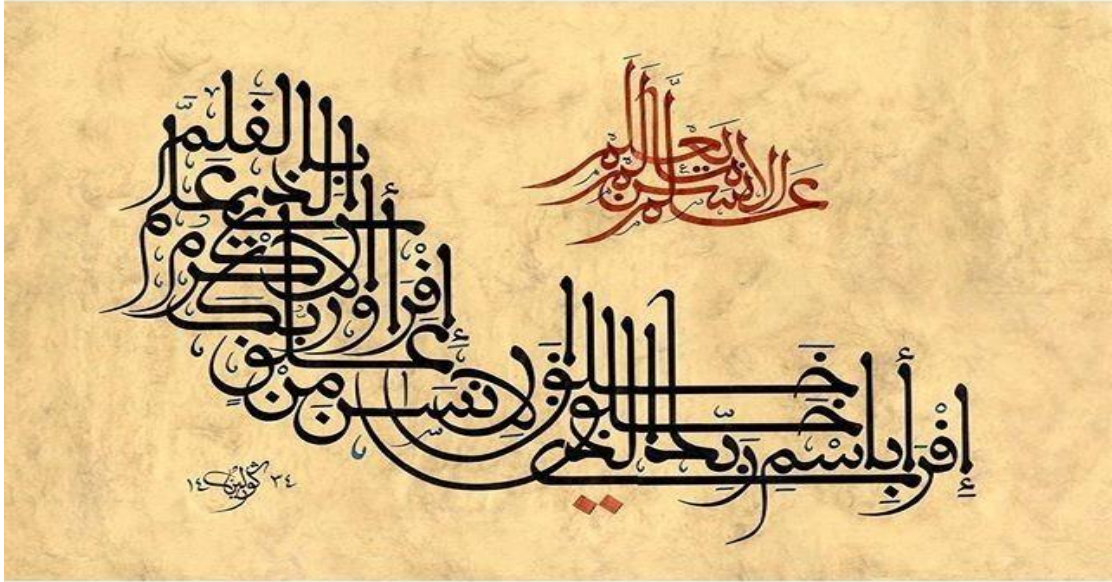 إقرأ باسم ربك الذي خلق
خلق الانسن من علق
إقرأ وربك الاكرم
الذي علم بالقلم
علم الانسن ما لم يعلم
١٤ ٣٤